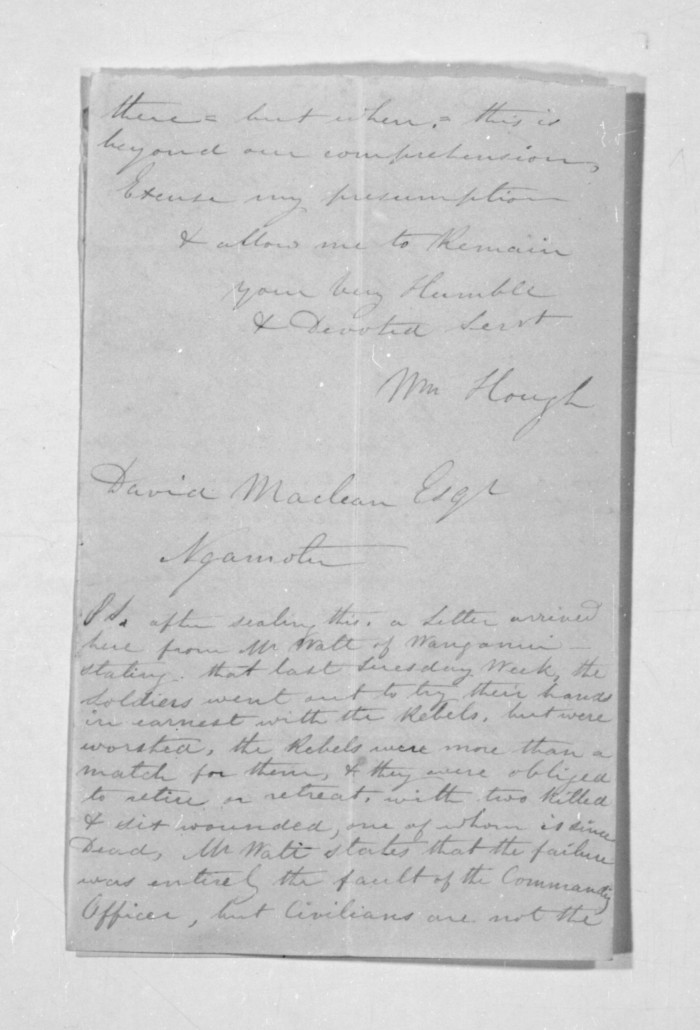 there = but when, = this is
beyond our comprehension,
Excuse my presumption
& allow me to Remain
your very Humble
& Devoted Servt
Wm Hough
David Maclean Esqr
Ngamotu
P S. after sealing this. a Letter arrived
here from Mr Watt of Wanganui -
stating. that last Tuesday Week, the
Soldiers went out to try their hands
in earnest with the Rebels, but were
worsted, the Rebels were more than a
match for them, & they were obliged
to retire or retreat, with two Killed
& six wounded, one of whom is since
Dead, Mr Watt states that the failure
was entirely the fault of the Commandg
Officer, but Civilians are not the